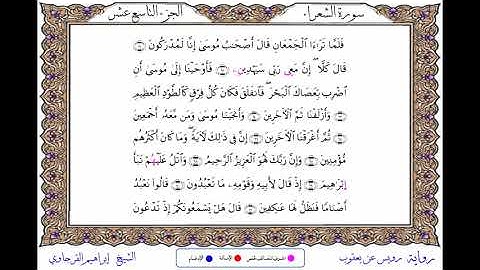 سورة الشعراء
الجزء التاسع عشر
فَلَمَّا تَرَٰٓءَا ٱلۡجَمۡعَانِ قَالَ أَصۡحَٰبُ مُوسَىٰٓ إِنَّا لَمُدۡرَكُونَ
قَالَ كَلَّآۖ إِنَّ مَعِي رَبِّي سَيَهۡدِينِۦ فَأَوۡحَيۡنَآ إِلَىٰ مُوسَىٰٓ أَنِ
ٱضۡرِب بِّعَصَاكَ ٱلۡبَحۡرَۖ فَٱنفَلَقَ فَكَانَ كُلُّ فِرۡقٖ كَٱلطَّوۡدِ ٱلۡعَظِيمِ
وَأَزۡلَفۡنَا ثَمَّ ٱلۡأٓخَرِينَ وَأَنجَيۡنَا مُوسَىٰ وَمَن مَّعَهُۥٓ أَجۡمَعِينَ
ثُمَّ أَغۡرَقۡنَا ٱلۡأٓخَرِينَ إِنَّ فِي ذَٰلِكَ لَأٓيَةٗۖ وَمَا كَانَ أَكۡثَرُهُم
مُّؤۡمِنِينَ وَإِنَّ رَبَّكَ لَهُوَ ٱلۡعَزِيزُ ٱلرَّحِيمُ وَٱتۡلُ عَلَيۡهُمۡ نَبَأَ
إِبۡرَٰهِيمَ إِذۡ قَالَ لِأَبِيهِ وَقَوۡمِهِۦ مَا تَعۡبُدُونَ قَالُواْ نَعۡبُدُ
أَصۡنَامٗا فَنَظَلُّ لَهَا عَٰكِفِينَ قَالَ هَلۡ يَسۡمَعُونَكُمۡ إِذۡ تَدۡعُونَ
رواية رويس عن يعقوب
الإمالة
الإدغام
الشيخ إبراهيم الفرجاوي